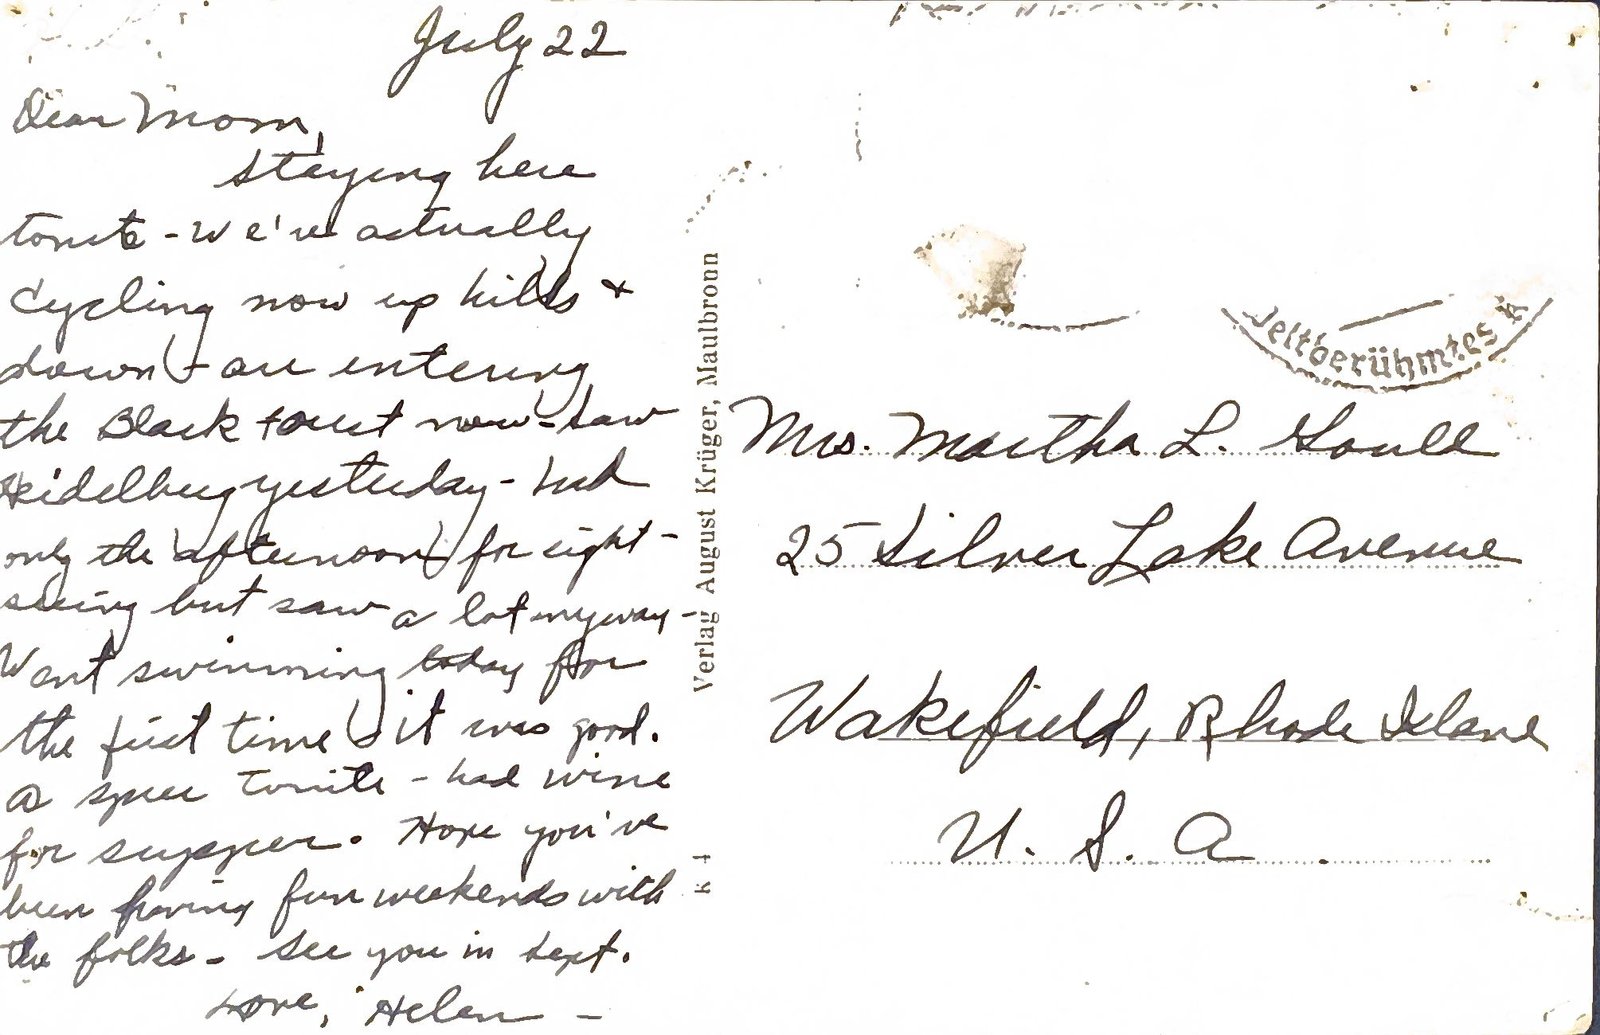 July 22
Dear Mom,
Staying here
tonite - We've actually
cycling now up hills +
down - are entering
the Black Forest now - saw
Heidelberg yesterday - had
only the afternoon for sight-
seeing but saw a lot anyway -
Went swimming today for
the first time - it was good.
A spree tonite - had wine
for supper. Hope you've
been having fun weekends with
the folks - See you in Sept.
Love, Helen -
Verlag August Krüger, Maulbronn
K 4
eltberühmtes K
Mrs. Martha L. Gould
25 Silver Lake Avenue
Wakefield, Rhode Island
U. S. A